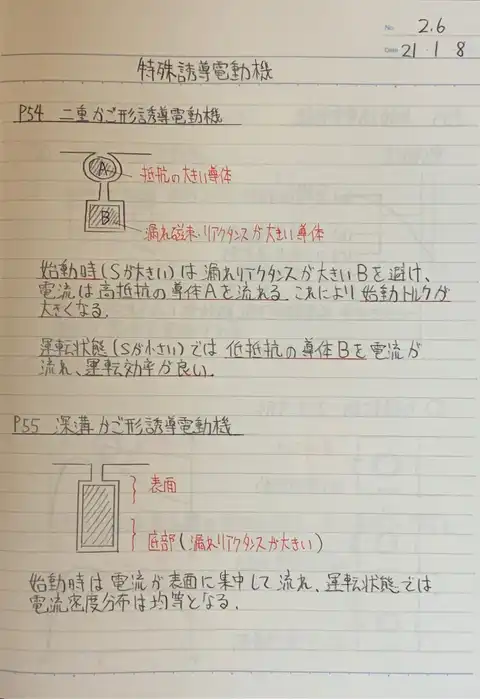 No. 2.6
Date 21 1 8
特殊誘導電動機
P54 二重かご形誘導電動機
A
抵抗の大きい導体
B
漏れ磁束・リアクタンスが大きい導体
始動時(Sが大きい)は漏れリアクタンスが大きいBを避け、
電流は高抵抗の導体Aを流れる。これにより始動トルクが
大きくなる。
運転状態(Sが小さい)では低抵抗の導体Bを電流が
流れ、運転効率が良い。
P55 深溝かご形誘導電動機
表面
底部(漏れリアクタンスが大きい)
始動時は電流が表面に集中して流れ、運転状態では
電流密度分布は均等となる。